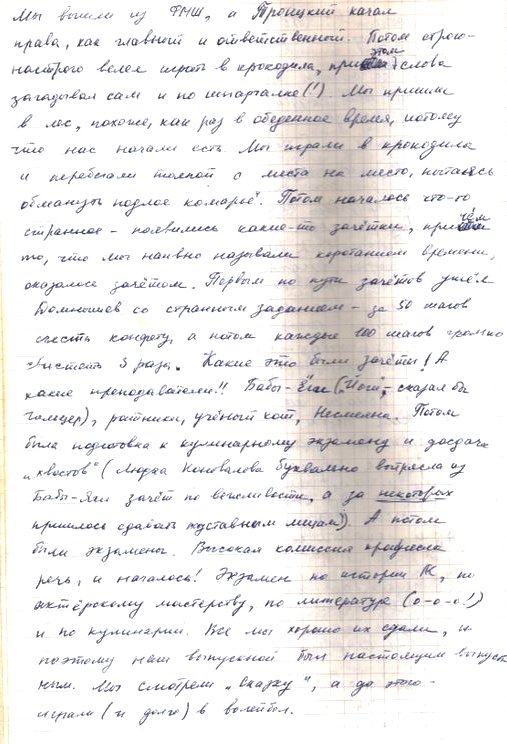 Мы вышли из ФМШ, и Троицкий качал
права, как главный и ответственный. Потом строго-
настрого велел играть в крокодила, при этом слова
загадывал сам и по шпаргалке(!) Мы пришли
в лес, похоже, как раз в обеденное время, потому
что нас начали есть. Мы играли в крокодила
и перебегали толпой с места на место, пытаясь
обмануть подлое комарьё. Потом началось что-то
странное - появились какие-то зачётки, причём
то, что мы наивно называли коротанием времени,
оказалось зачётом. Первым по пути зачётов ушёл
со странным заданием - за 50 шагов
съесть конфету, а потом каждые 100 шагов громко
свистеть 3 раза. Какие это были зачёты! А
какие преподаватели!! Бабы-Яги („Йоги", - сказал бы
), ратники, учёный кот, Несмеяна. Потом
была подготовка к кулинарному экзамену и досдача
„хвостов" (Людка Коновалова буквально вытрясла из
Бабы-Яги зачёт по вежливости, а за некоторых
пришлось сдавать подставным лицам!). А потом
были экзамены. Высокая комиссия произнесла
речь, и началось! Экзамен по истории, по
актёрскому мастерству, по литературе (о-о-о!)
и по кулинарии. Все мы хорошо их сдали, и
поэтому наш выпускной был настоящим выпуск-
ным. Мы смотрели „Сказку", а до этого -
играли (и долго) в волейбол.